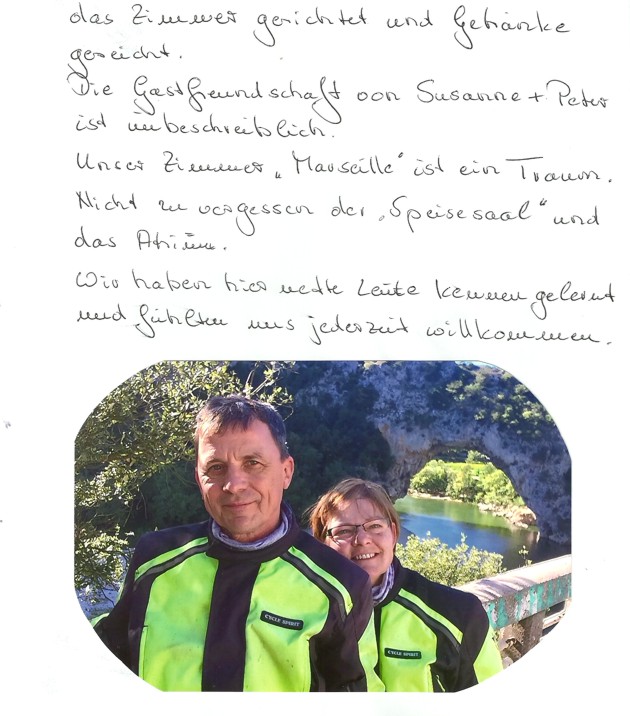 das Zimmer gerichtet und Getränke
gereicht.
Die Gastfreundschaft von Susanne + Peter
ist unbeschreiblich.
Unser Zimmer „Marseille“ ist ein Traum.
Nicht zu vergessen der „Speisesaal“ und
das Atrium.
Wir haben hier nette Leute kennen gelernt
und fühlten uns jederzeit willkommen.
CYCLE SPIRIT
CYCLE SPIRIT